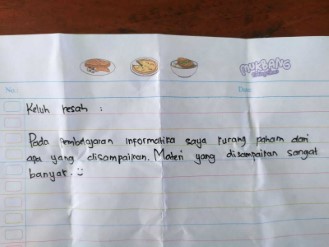 MUKBANG
No.
Date
Keluh resah :
Pada pembelajaran informatika saya kurang paham dari
apa yang disampaikan. Materi yang disampaikan sangat
banyak. :)